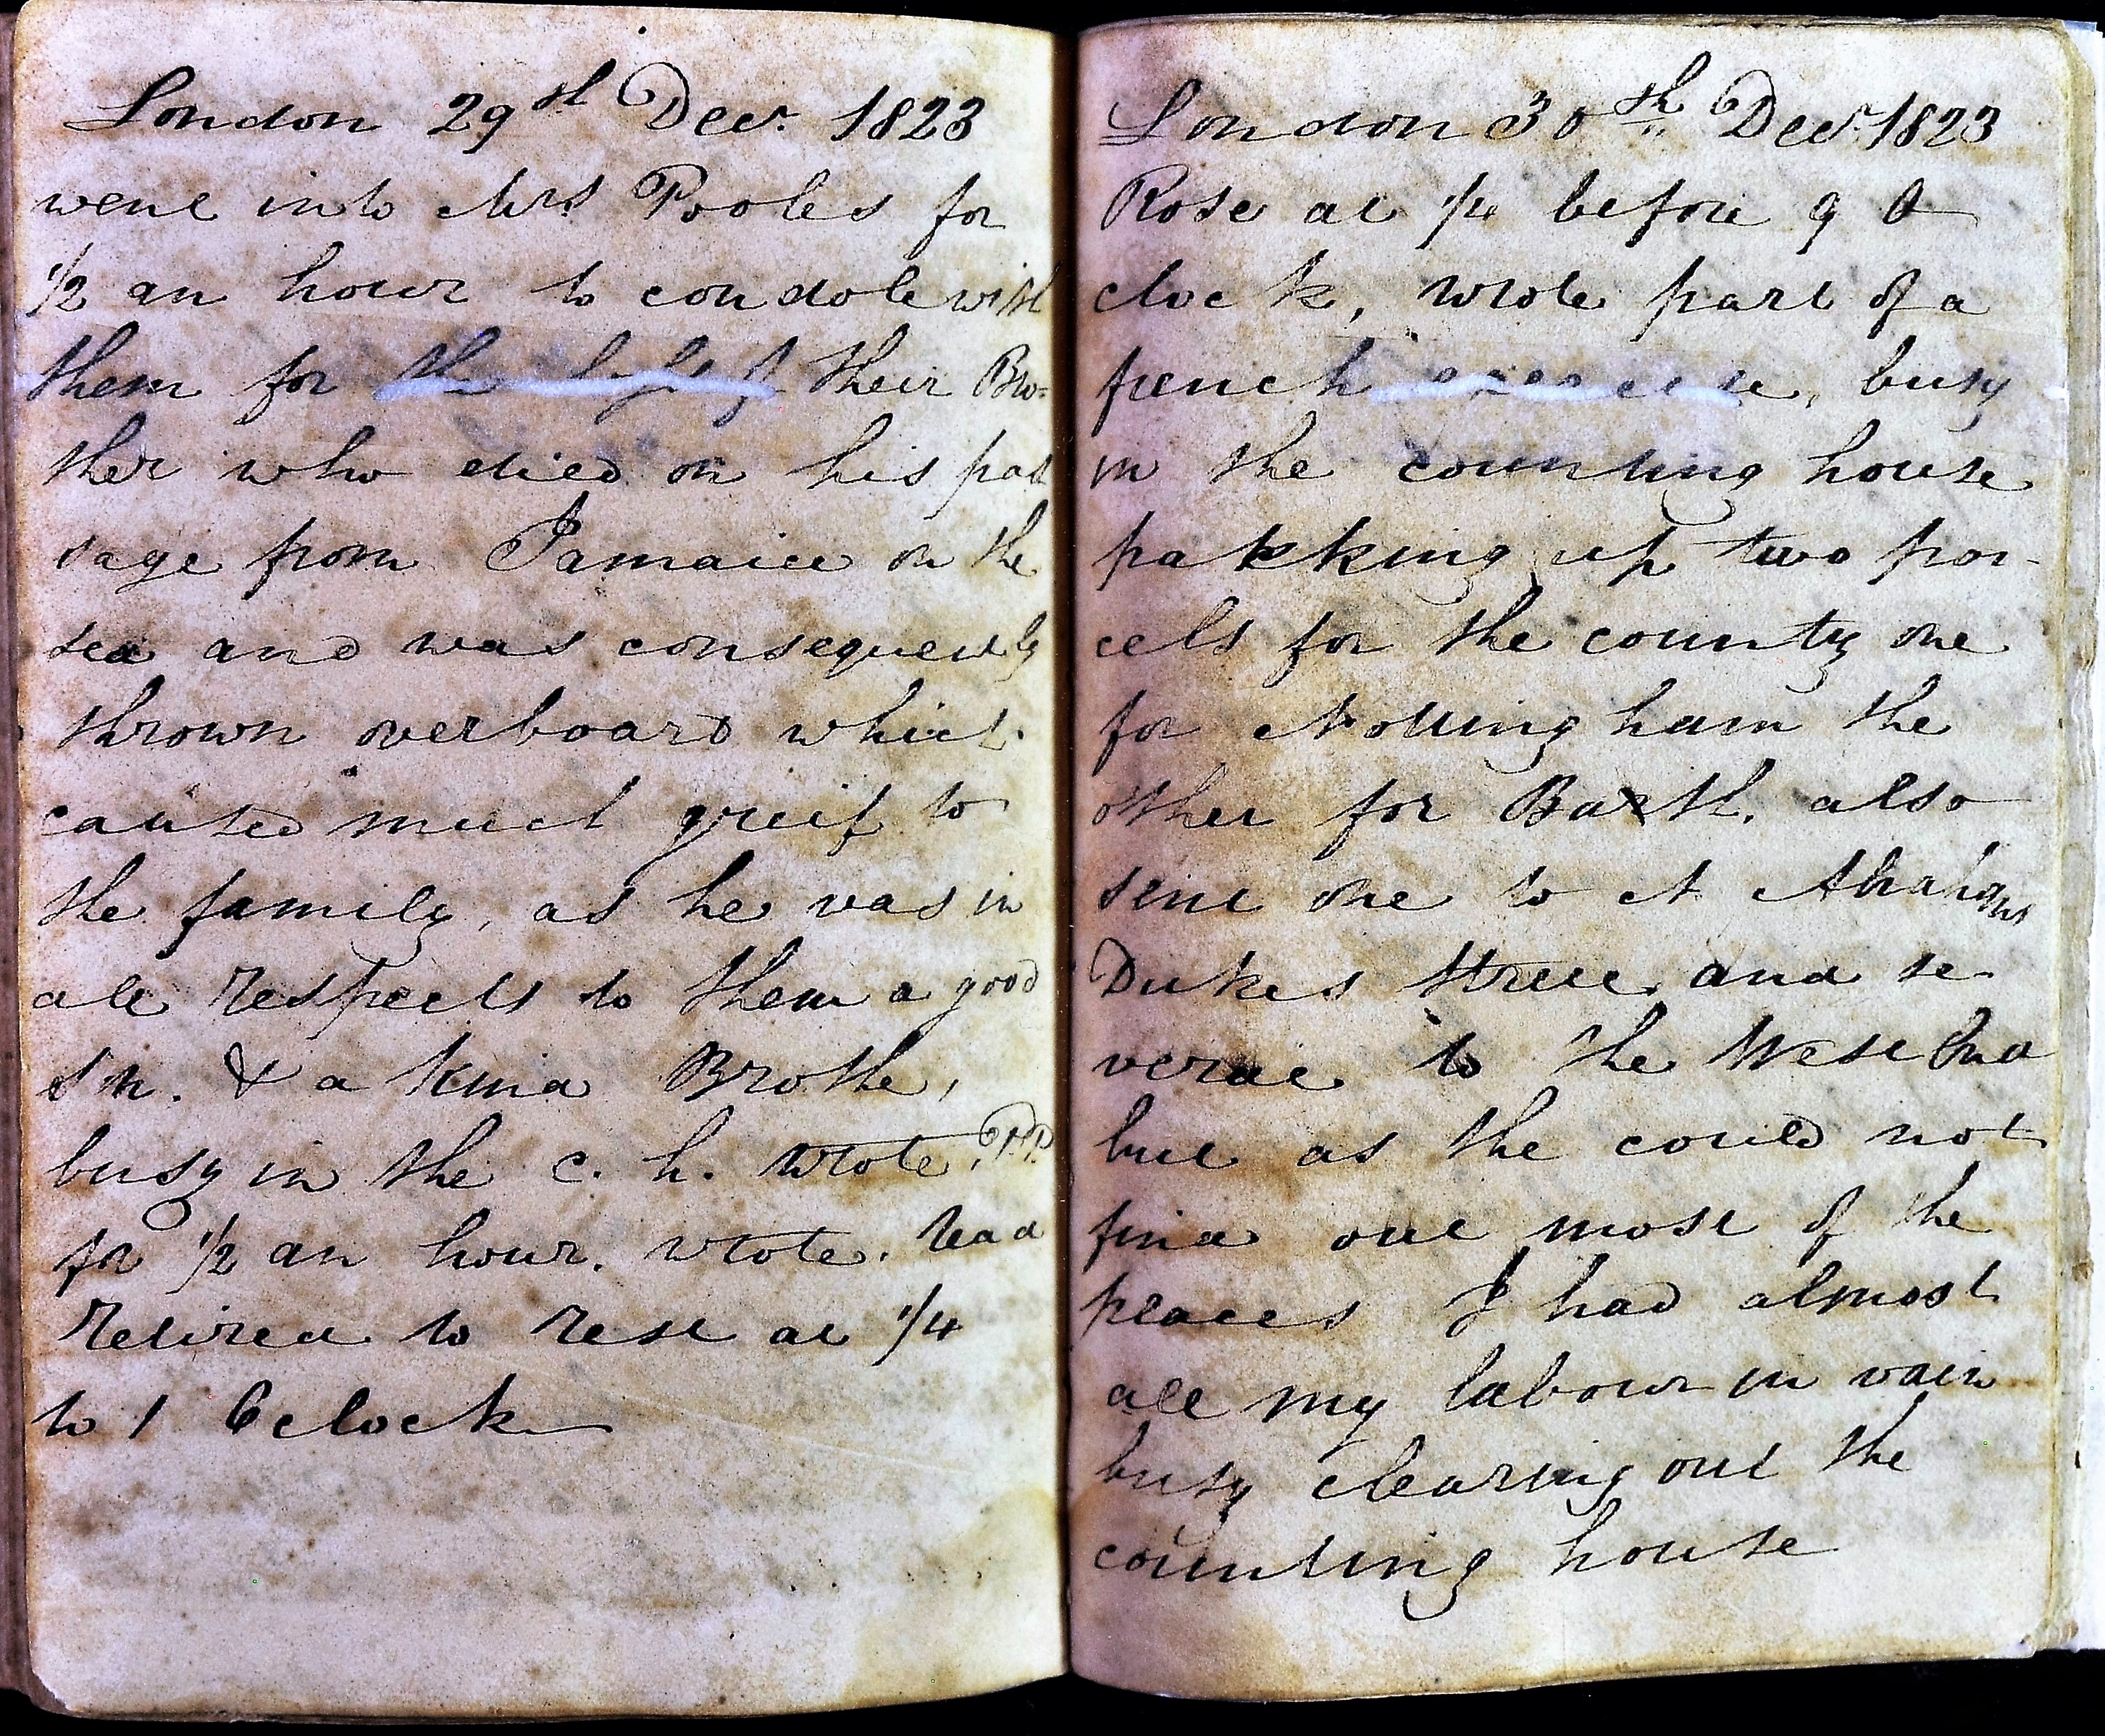 London 29th Decr. 1823
went into Mrs Pooles for
1/2 an hour to condole with
them for the loss of their Bro-
ther who died on his pas
sage from Jamaica on the
sea and was consequently
thrown overboard which
caused much greif to
the family, as he was in
all respects to them a good
son. & a kind Brothe,
busy in the c. h. wrote,
for 1/2 an hour. wrote. read
retired to rest at 1/4
to 1 Oclock
London 30th Decr. 1823
Rose at 1/4 before 9 O
clock, wrote part of a
french exercise, busy
in the counting house
pakking up two par-
cels for the county one
for Nottingham the
other for Bath. also
sent one to A Abrahams
Dukes Street, and se
veral to the West End
but as the could not
find out most of the
places I had almost
all my labour in vain
busy clearing out the
counting house